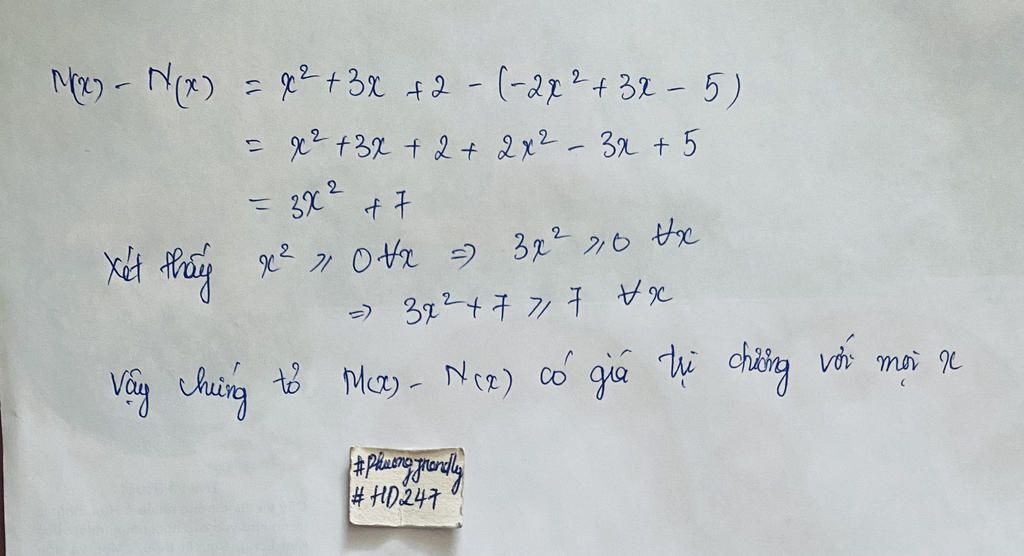 M(x) - N(x) = x² + 3x + 2 - (-2x² + 3x - 5)
= x² + 3x + 2 + 2x² - 3x + 5
= 3x² + 7
Xét thấy x² ≥ 0 ∀x ⇒ 3x² ≥ 0 ∀x
⇒ 3x² + 7 ≥ 7 ∀x
Vậy chứng tỏ M(x) - N(x) có giá trị dương với mọi x
#HD247